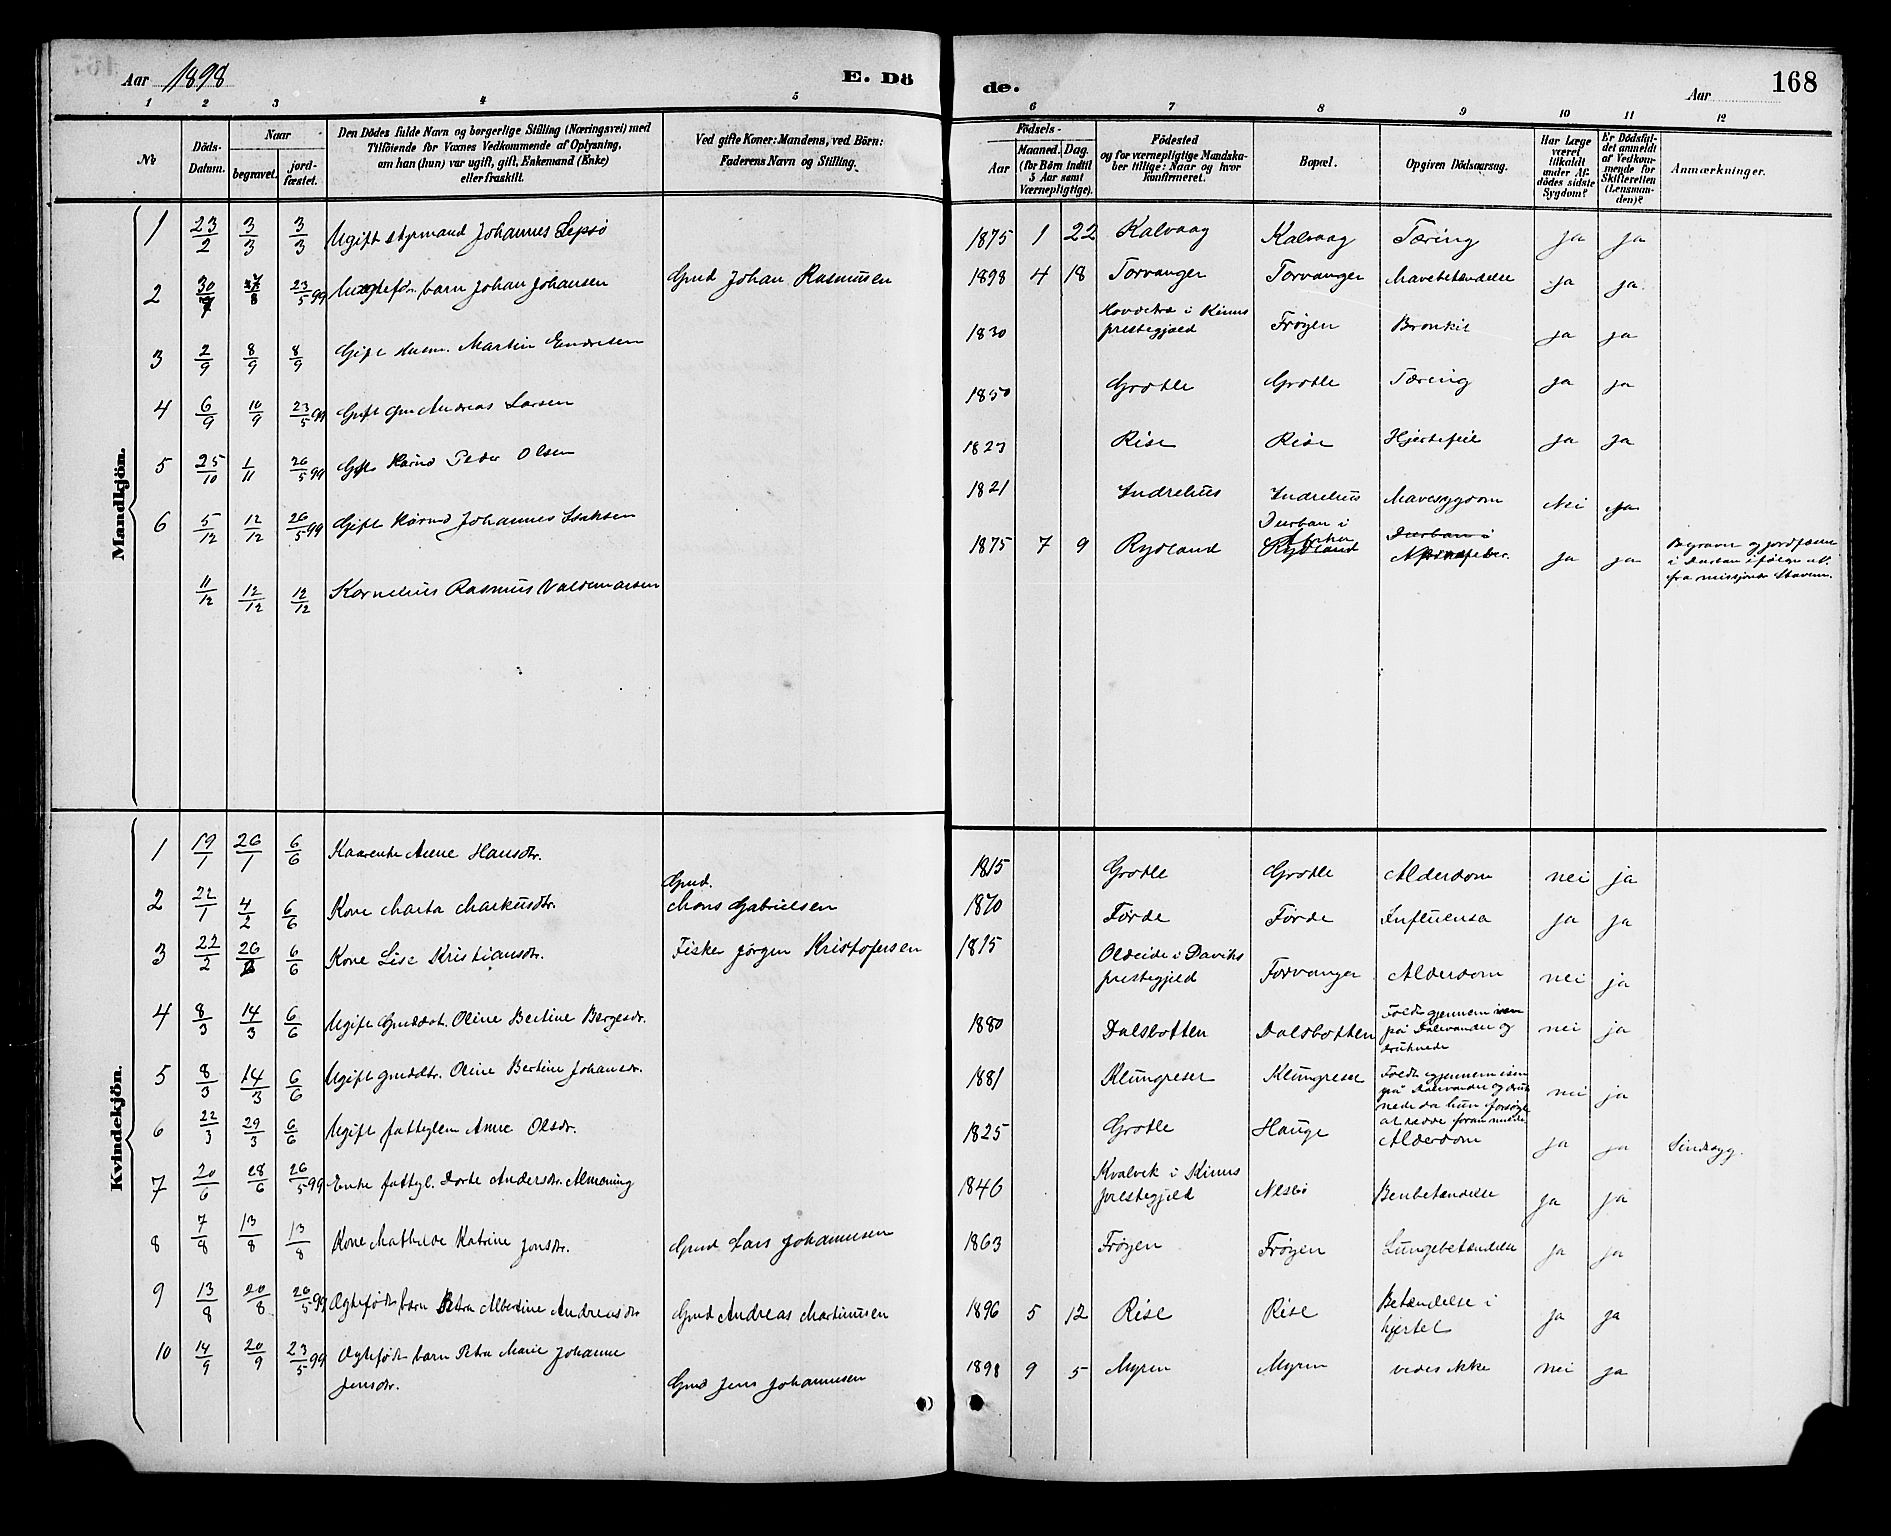 Aar 1898
E. Dö
de.
Aar
168
1 2 3 4 5 6 7 8 9 10 11 12
No
Döds-
Datum.
Naar
begravet.
jord-
fæstet.
Den Dödes fulde Navn og borgerlige Stilling (Næringsvei) med
Tilföiende for Voxnes Vedkommende af Oplysning,
om han (hun) var ugift, gift, Enkemand (Enke)
eller fraskilt.
Ved gifte Koner: Mandens, ved Börn:
Faderens Navn og Stilling.
Födsels-
Aar
Maaned. Dag.
(for Börn indtil
5 Aar samt
Værnepligtige).
Födested
og for værnepligtige Mandska-
ber tillige: Naar og hvor
konfirmeret.
Bopæl.
Opgiven Dödsaarsag.
Har Læge
været
tilkaldt
under Af-
dödes sidste
Sygdom?
Er Dödsfal-
det anmeldt
af Vedkom-
mende for
Skifteretten
(Lensman-
den)?
Anmærkninger.
Mandkjön.
1 23/2 3/3 3/3 Ugift styrmand Johannes Sepsø 1875 1 22 Kalvaag Kalvaag Tæring ja ja
2 30/7 23/5 99 barn Johan Johansen Gmd Johan Rasmusen 1898 4 18 Torvanger Torvanger Mavebetændelse ja ja
3 2/9 8/9 8/9 Gift Husm. Martin Endresen 1830 i Kinns
prestegjæld Frøyen Bronkit ja ja
4 6/9 10/9 23/5 99 Gift Gm Andreas Larsen 1850 Grotle Grotle Tæring ja ja
5 25/10 1/11 26/5 99 Gift Kårmd Peder Olsen 1823 Rise Rise Hjertefeil ja ja
6 5/12 12/12 26/5 99 Gift Kårmd Johannes Isaksen 1821 Indrehus Indrehus Mavesygdom Nei ja
11/12 12/12 12/12 Kornelius Rasmus Valdemarsen 1875 7 9 Rydland Durban i
Afrika
Rydland Durban i
ja ja
i Durban ifølge
fra
Kvindekjön.
1 19/1 26/1 6/6 Kaarenke Anne Hansdtr. 1815 Grotle Grotle Alderdom nei ja
2 22/1 4/2 6/6 Kone Marta Markusdtr. Gmd.
Mons Gabrielsen 1870 Førde Førde Influensa ja ja
3 22/2 26/2 6/6 Kone Lise Kristiansdtr. Fisker Jørgen Kristofersen 1815 Oldeide i Daviks
prestegjeld Torvanger Alderdom nei ja
4 8/3 14/3 6/6 Ugift Gmddat. Oline Bertine Bergesdr. 1880 Dalsbotten Dalsbotten Faldt gjennem isen
på Dalevandet og
druknede nei ja
5 8/3 14/3 6/6 Ugift gmddtr. Oline Bertine Johansdr. 1881 Klungreset Klungreset Faldt gjennem isen
på Dalevandet og druk
nede da hun forsøgte
at redde
nei ja
6 22/3 29/3 6/6 Ugift fattiglem Anne Olsdr. 1825 Grotle Hauge Alderdom ja ja Sindssyg.
7 20/6 28/6 26/5 99 Enke fattigl. Dorte Andersdr. Almening 1846 Kvalvik i Kinns
prestegjeld Nesbø Benbetændelse ja ja
8 7/8 13/8 13/8 Kone Mathilde Katrine Jonsdtr. Gmd Lars Johannesen 1863 Frøyen Frøyen Lungebetændelse ja ja
9 13/8 20/8 26/5 99 Ogtefødt barn Petra Albertine Andreasdtr Gmd Andreas Martinusen 1896 5 12 Rise Rise Betændelse i
hjertet ja ja
10 14/9 20/9 23/5 99 Ogtefødt barn Petra Marie Johanne
Jensdtr. Gmd Jens Johannesen 1898 9 5 Myren Myren vedes ikke nei ja